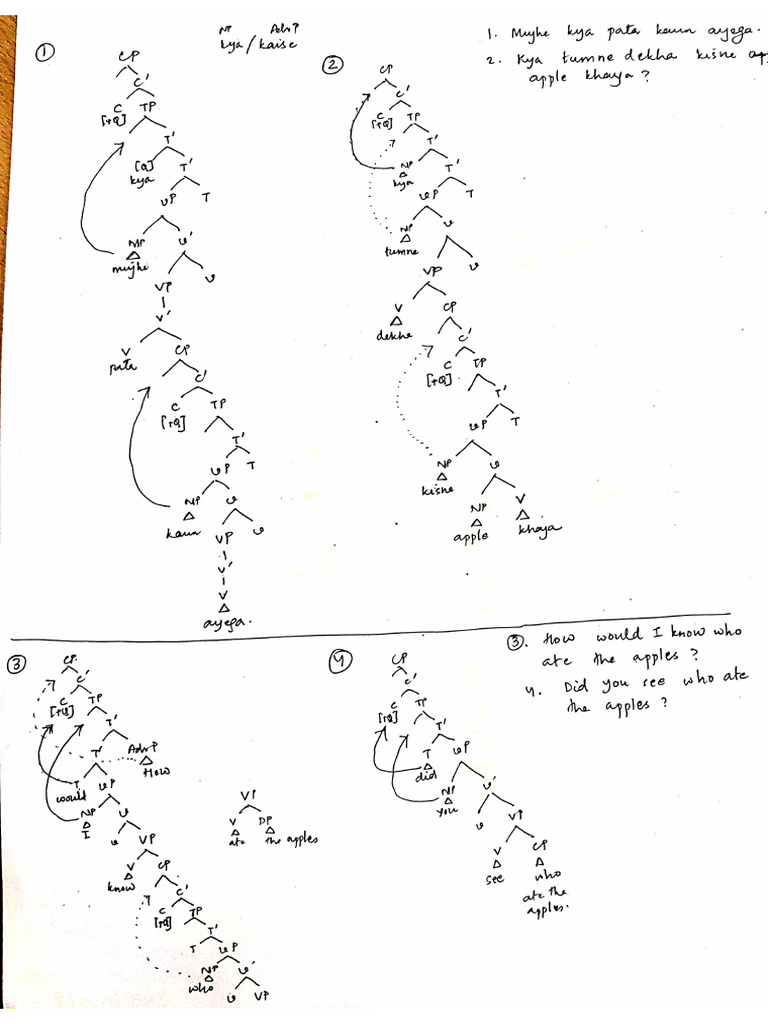 NP AdvP
kya / kaise
1. Mujhe kya pata kaun ayega.
2. Kya tumne dekha kisne
apple khaya ?
1
CP
C'
C TP
[+Q]
T'
[Q] T'
kya
vP T
NP v'
mujhe
VP v
V'
V CP
pata
C'
C TP
[+Q]
T'
vP T
NP v
kaun
VP v
V'
V
ayega.
2
CP
C'
C TP
[+Q]
T'
NP T'
kya
vP T
NP v
tumne
VP v
V CP
dekha
C'
C TP
[+Q]
T'
vP T
NP v
kisne
NP V
apple khaya
3. How would I know who
ate the apples ?
4. Did you see who ate
the apples ?
3
CP
C'
C TP
[+Q]
T'
T' AdvP
How
T vP
would
NP v
I
v VP
V CP
know
C'
C TP
[+Q]
T'
T vP
NP v'
who
v VP
VP
V DP
ate the apples
4
CP
C'
C TP
[+Q]
T'
T vP
did
NP v'
you
v VP
V CP
see who
ate the
apples.